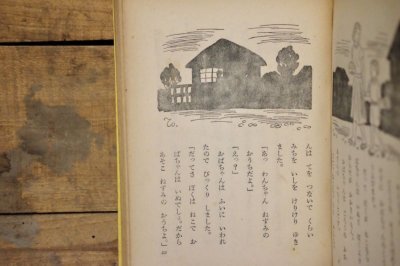 んは てを つないで くらい
みちを いしを けりけり ゆき
ました。
「あっ わんちゃん ねずみの
おうちだよ。」
「えっ？」
かばちゃんは ふいに いわれ
たので びっくり しました。
「だってさ ぼくは ねこで お
ばちゃんは いぬでしょ。だから
あそこ ねずみの おうちよ。」